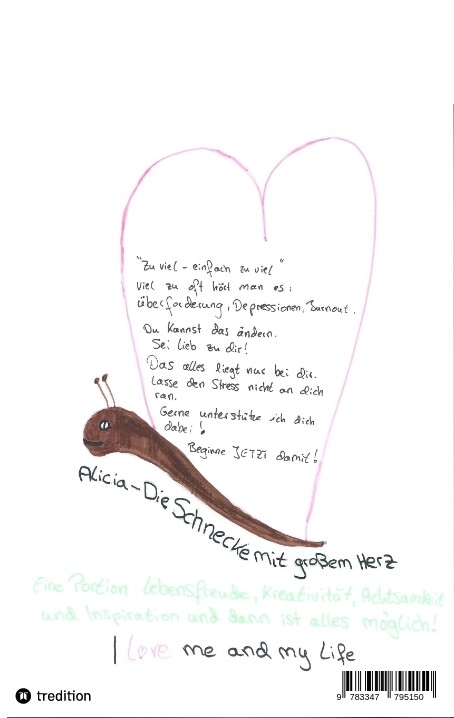 "Zu viel - einfach zu viel"
viel zu oft hört man es:
Überforderung, Depressionen, Burnout.
Du kannst das ändern.
Sei lieb zu dir!
Das alles liegt nur bei dir.
Lasse den Stress nicht an dich
ran.
Gerne unterstütze ich dich
dabei!
Beginne JETZT damit!
Alicia - Die Schnecke mit großem Herz
Eine Portion Lebensfreude, Kreativität, Achtsamkeit
und Inspiration und dann ist alles möglich!
I Love me and my Life
tredition
9 783347 795150